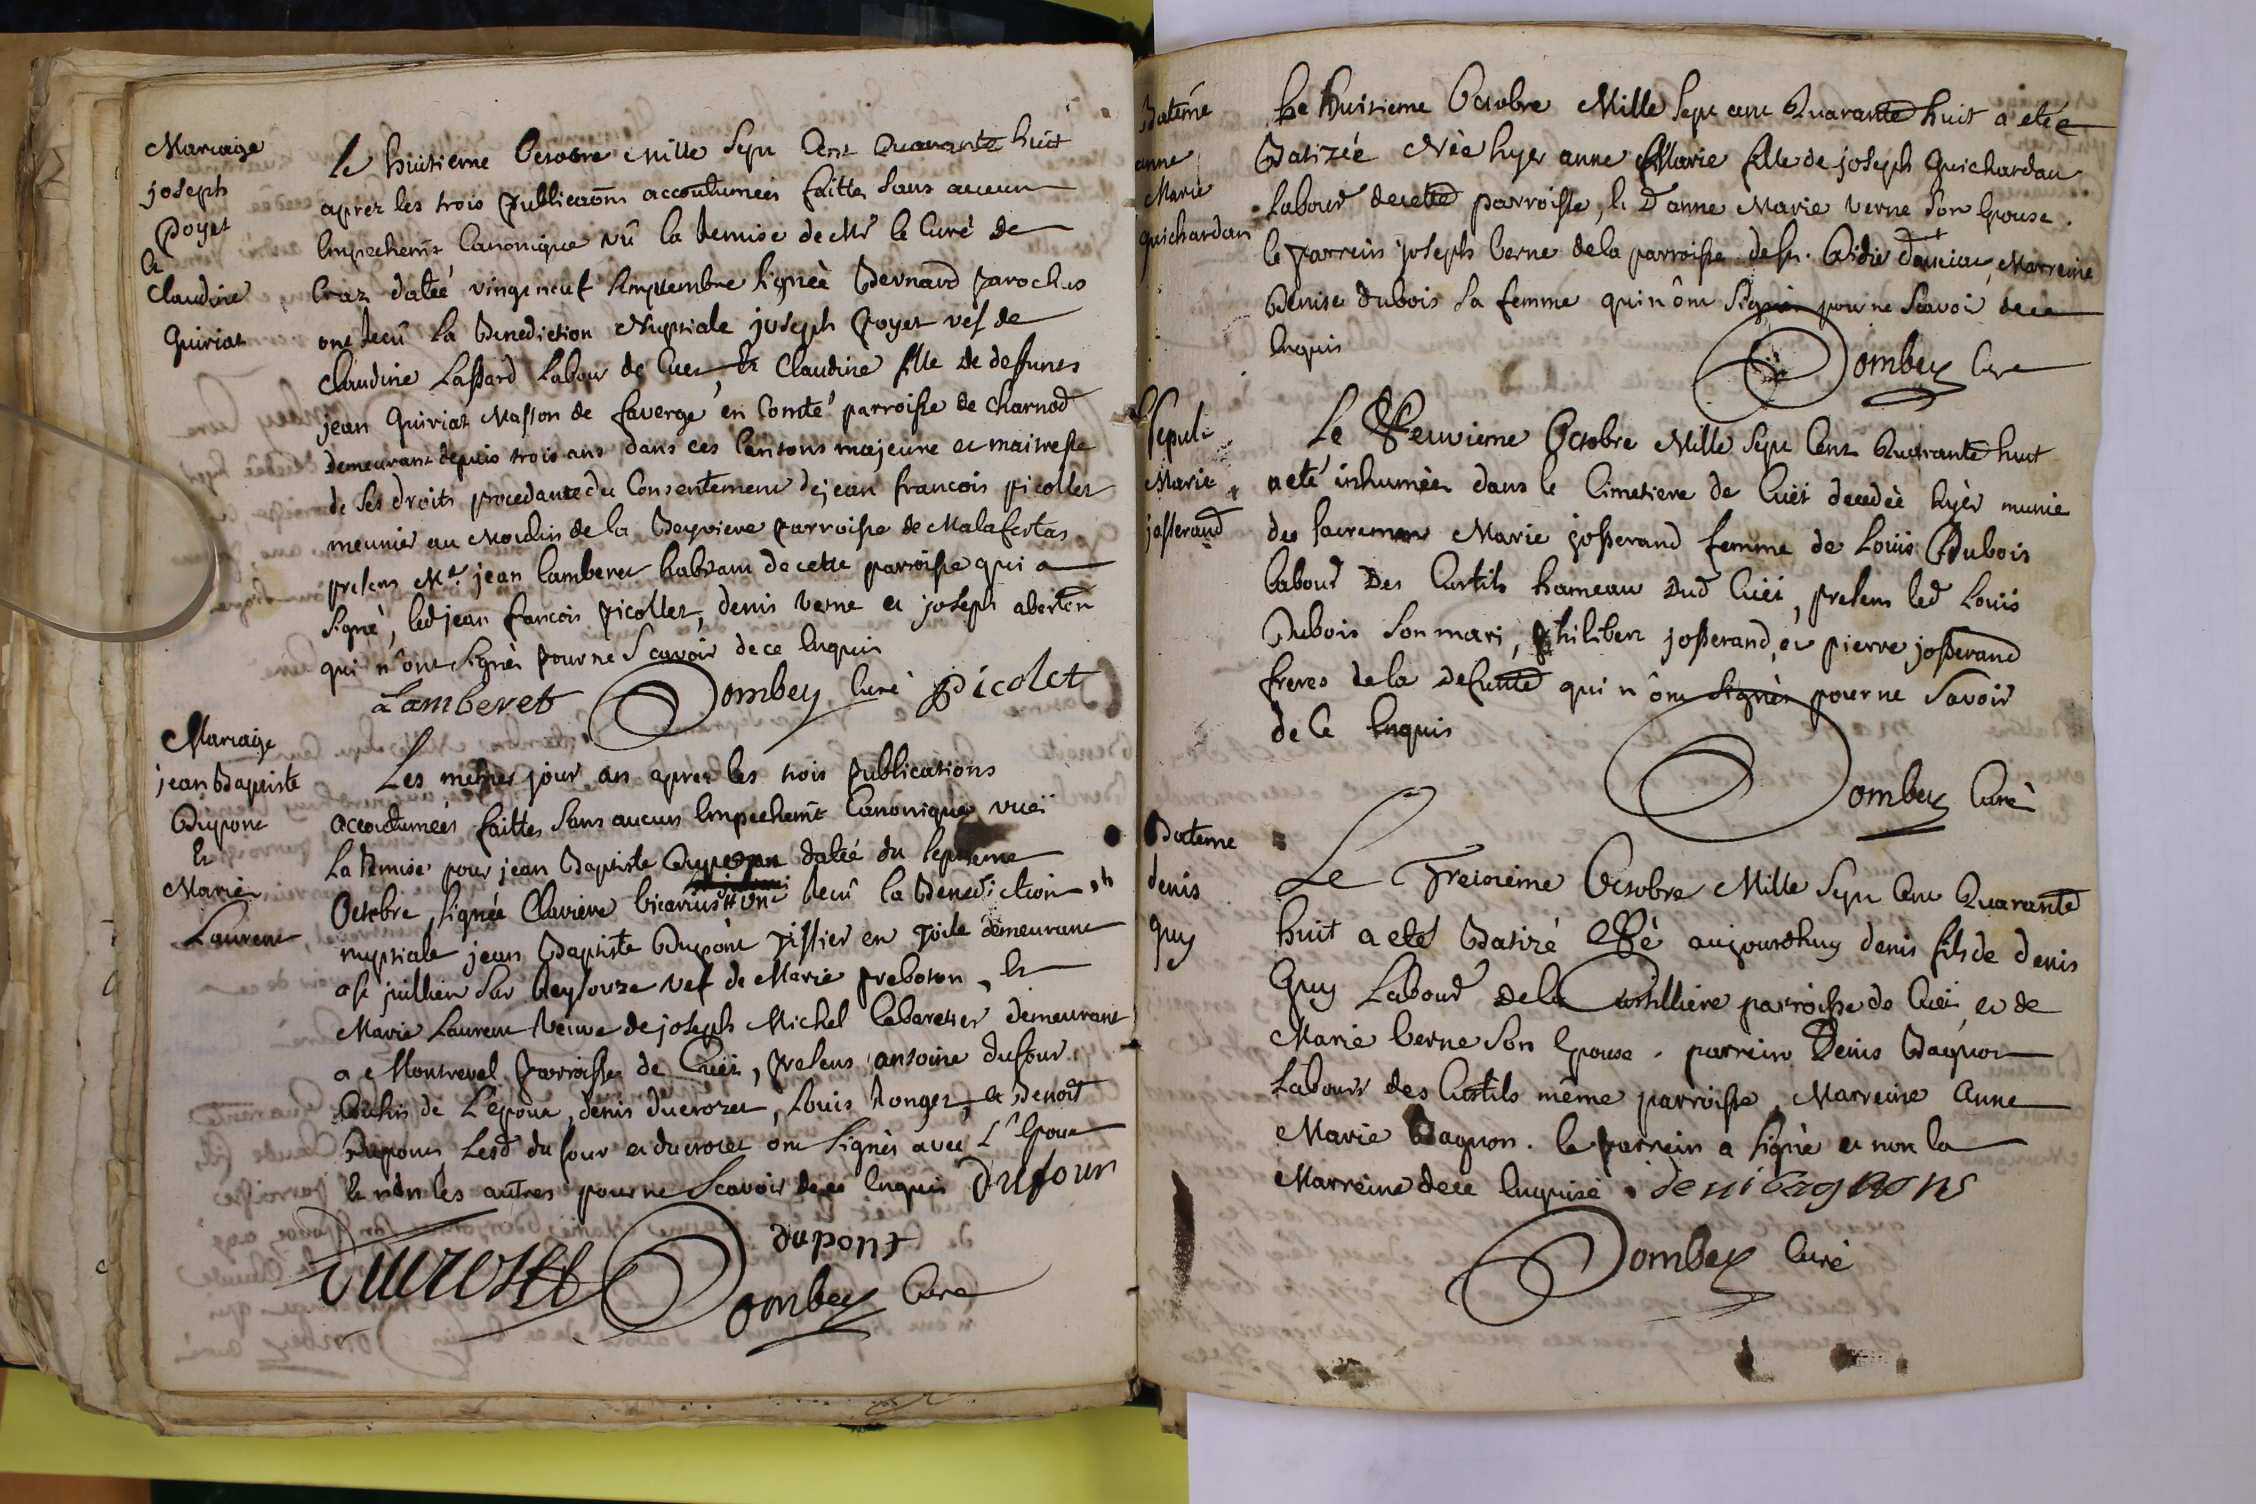 Mariage
joseph
poyet
et
Claudine
Quiriat
le huitieme Octobre Mille Sept Cent Quarante huit
aprez les trois publicaons accoutumées faittes sans aucun
Empechemt Canonique vû la Remise de Mr le Curé de
Craz datée vingt neuf Septembre signée Bernard parochus
ont recû la Benediction Nuptiale joseph poyet vef de
Claudine Lassard Labour de Cuet, et Claudine fille de deffunts
jean Quiriat Masson de faverge en Comté parroisse de Charnod
demeurant depuis trois ans dans ces Cantons majeure et maitresse
de ses droits procedante du Consentement de jean francois picollet
meunier au Moulin de la Beyviere parroisse de Malafretas
presens Me. jean Lamberet habitant de cette parroisse qui a
signé, led jean francois picollet, denis verne et joseph
qui n'ont signés pour ne Scavoir de ce Enquis
Lamberet Dombey Curé picolet
Mariage
jean Baptiste
Dupont
et
Marie
Laurent
Les mêmes jour an aprez les trois publications
accoutumées faittes sans aucun Empechemt Canonique vüe
la Remise pour jean Baptiste datée du Septieme
Octobre, signée Claviere vicarius ont recû la Benediction
nuptiale jean Baptiste Dupont Tissier en Toile demeurant
a st jullien sur Reyssouze vef de Marie preboson, et
Marie Laurent veuve de joseph Michel Cabaretier demeurant
a Montrevel parroisse de Cuet, presens antoine dufour
Cousin de L'epoux, denis ducrozet, Louis Ronger, et Benoit
Dupont Lesd du four et ducrozet ont signés avec L'Epoux
et non les autres pour ne Scavoir de ce enquis Dufour
dupont
Ducroset Dombey Curé
Bateme
anne
Marie
Guichardan
Le Huitieme Octobre Mille Sept cent Quarante huit a etée
Batizée Née hyer anne Marie fille de joseph Guichardan
Labour de cette parroisse, et D'anne Marie verne son Epouse.
le parrein joseph verne de la parroisse de st. Didie Marreine
Denise dubois sa femme qui n'ont signés pour ne Scavoir de ce
Enquis
Dombey Cure
Sepult
Marie
josserand
Le Neuvieme Octobre Mille Sept Cent Quarante huit
a eté inhumée dans le Cimetiere de Cuet decedée hyer munie
des sacremens Marie josserand femme de Loüis Dubois
labour Des Curtils hameau dud Cuet, presens led Louis
Dubois son mari, philibert josserand, et pierre josserand
freres de la Defunte qui n'ont signés pour ne Savoir
de Ce Enquis
Dombey Curé
Bateme
denis
Guy
Le Treizieme Octobre Mille Sept Cent Quarante
huit a eté Batizé Né aujourdhuy denis fils de denis
Guy Labour de la Curtilliere parroisse de Cuet, et de
Marie Verne Son Epouse. parrein Denis Bagnon
Labour des Curtils même parroisse, Marreine Anne
Marie Bagnon. le parrein a signé et non la
Marreine de ce Enquise. denibagnons
Dombey Curé